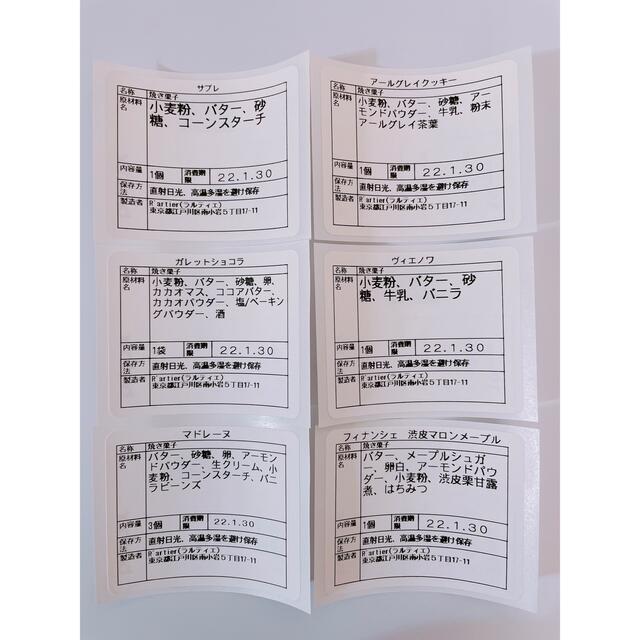 サブレ
名称 焼き菓子
原材料名 小麦粉、バター、砂
糖、コーンスターチ
内容量 1個 消費期限 22.1.30
保存方法 直射日光、高温多湿を避け保存
製造者 R'artier(ラルティエ)
東京都江戸川区南小岩5丁目17-11
アールグレイクッキー
名称 焼き菓子
原材料名 小麦粉、バター、砂糖、アー
モンドパウダー、牛乳、粉末
アールグレイ茶葉
内容量 1個 消費期限 22.1.30
保存方法 直射日光、高温多湿を避け保存
製造者 R'artier(ラルティエ)
東京都江戸川区南小岩5丁目17-11
ガレットショコラ
名称 焼き菓子
原材料名 小麦粉、バター、砂糖、卵、
カカオマス、ココアバター、
カカオパウダー、塩/ベーキン
グパウダー、酒
内容量 1袋 消費期限 22.1.30
保存方法 直射日光、高温多湿を避け保存
製造者 R'artier(ラルティエ)
東京都江戸川区南小岩5丁目17-11
ヴィエノワ
名称 焼き菓子
原材料名 小麦粉、バター、砂
糖、牛乳、バニラ
内容量 1個 消費期限 22.1.30
保存方法 直射日光、高温多湿を避け保存
製造者 R'artier(ラルティエ)
東京都江戸川区南小岩5丁目17-11
マドレーヌ
名称 焼き菓子
原材料名 バター、砂糖、卵、アーモン
ドパウダー、生クリーム、小
麦粉、コーンスターチ、バニ
ラビーンズ
内容量 3個 消費期限 22.1.30
保存方法 直射日光、高温多湿を避け保存
製造者 R'artier(ラルティエ)
東京都江戸川区南小岩5丁目17-11
フィナンシェ 渋皮マロンメープル
名称 焼き菓子
原材料名 バター、メープルシュガ
ー、卵白、アーモンドパウ
ダー、小麦粉、渋皮栗甘露
煮、はちみつ
内容量 1個 消費期限 22.1.30
保存方法 直射日光、高温多湿を避け保存
製造者 R'artier(ラルティエ)
東京都江戸川区南小岩5丁目17-11